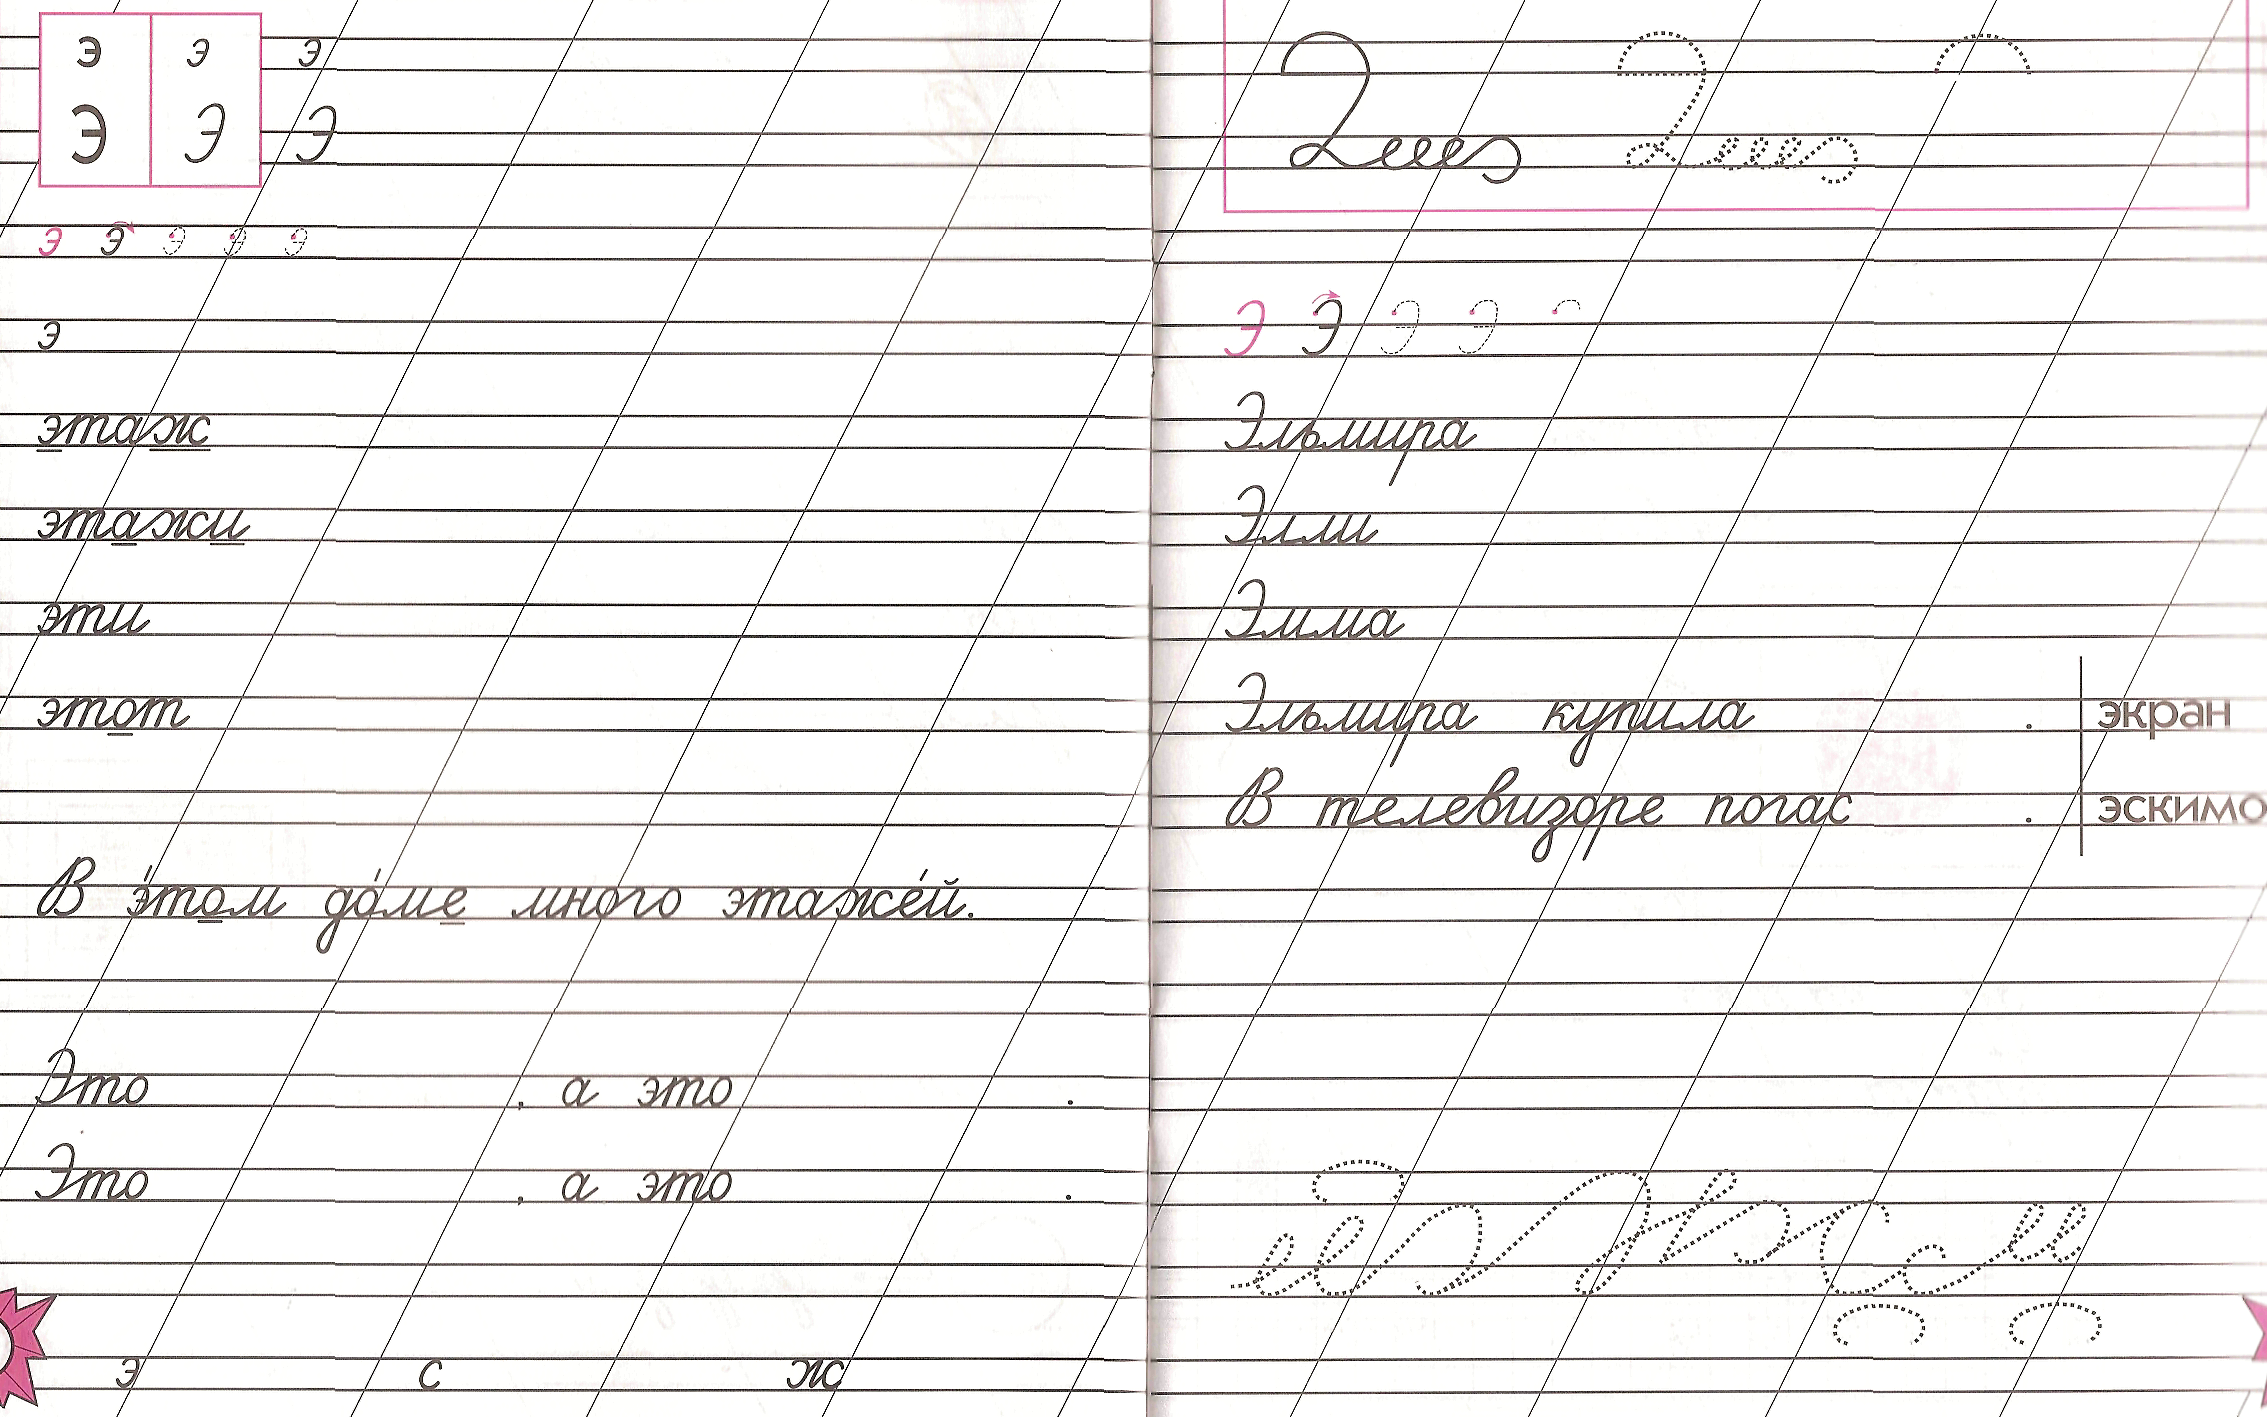 э э э
Э Э Э
э э э э э
э
этаж
этажи
эти
этот
В э́том до́ме много этаже́й.
Это , а это .
Это , а это .
э с ж
Э Э Э Э
Эльмира
Элли
Эмма
Эльмира купила . экран
В телевизоре погас . эскимо